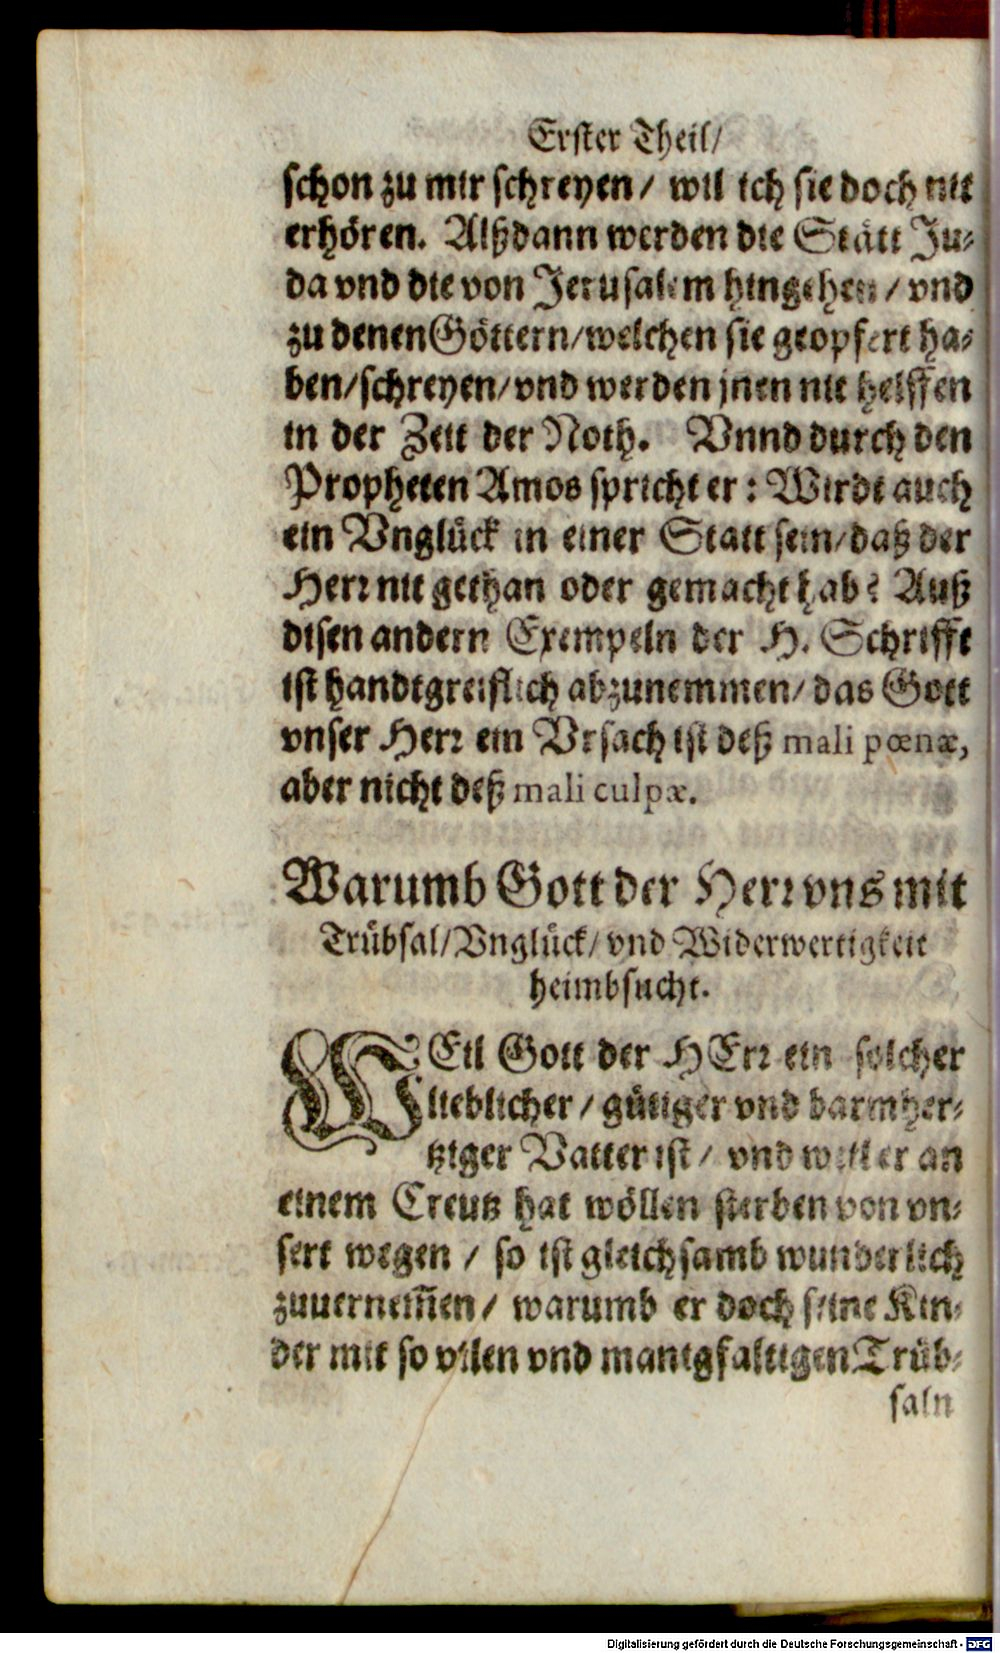 Erster Theil/
schon zu mir schreyen/ wil ich sie doch nit
erhören. Alßdann werden die Stätt Ju-
da vnd die von Jerusalem hingehen/ vnd
zu denen Göttern/welchen sie geopfert ha-
ben/schreyen/vnd werden jnen nit helffen
in der Zeit der Noth. Vnnd durch den
Propheten Amos spricht er: Wirdt auch
ein Vnglück in einer Statt sein/daß der
Herr nit gethan oder gemacht hab? Auß
disen andern Exempeln der H. Schrifft
ist handtgreiflich abzunemmen/ das Gott
vnser Herr ein Vrsach ist deß mali pœnæ,
aber nicht deß mali culpæ.
Warumb Gott der Herr vns mit
Trübsal/Vnglück/ vnd Widerwertigkeit
heimbsucht.
WEil Gott der HErr ein solcher
lieblicher/ gütiger vnd barmher-
tziger Vatter ist/ vnd weil er an
einem Creutz hat wöllen sterben von vn-
sert wegen / so ist gleichsamb wunderlich
zuuernem̅en/ warumb er doch seine Kin-
der mit so vilen vnd manigfaltigen Trüb-
saln
Digitalisierung gefördert durch die Deutsche Forschungsgemeinschaft - DFG